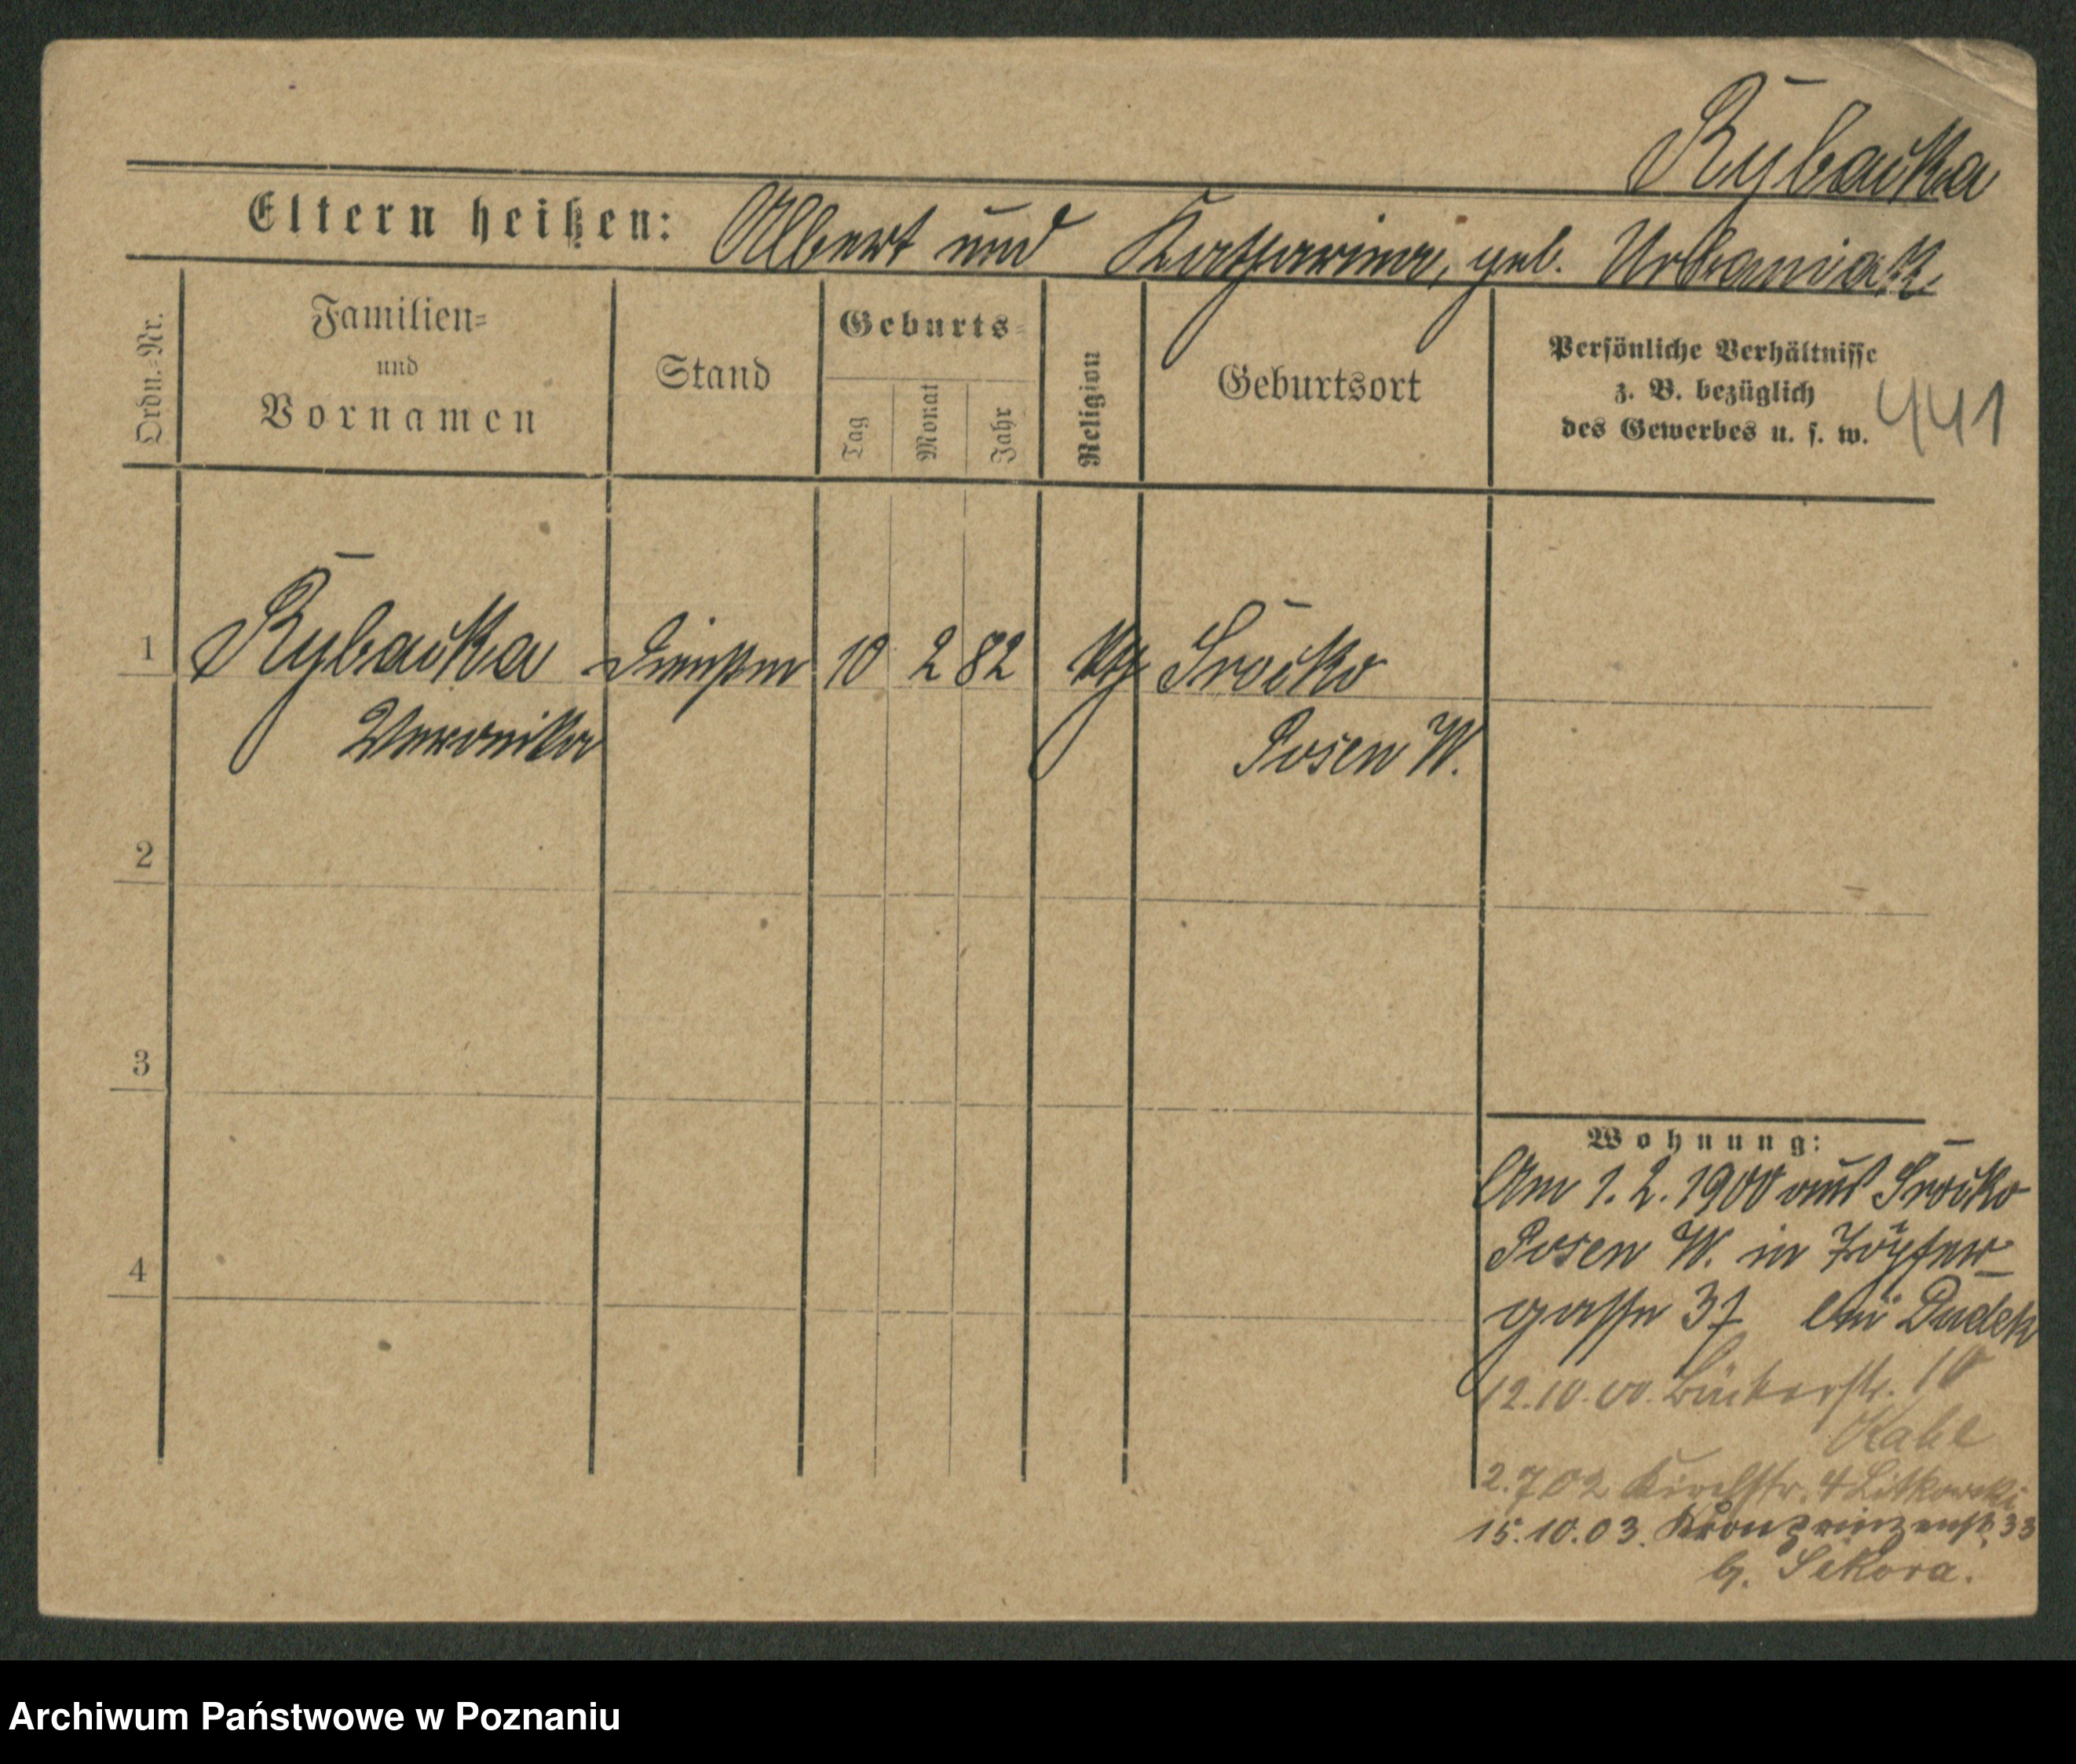 Rybacka
Eltern heißen: Albert und Katharina, geb. Urbaniak.
Ordn.-Nr.
Familien-
und
Vornamen
Stand
Geburts-
Tag
Monat
Jahr
Religion
Geburtsort
Persönliche Verhältnisse
z. B. bezüglich
des Gewerbes u. s. w.
441
1 Rybacka 10 2 82 kth Srocko
Veronika Posen W.
2
3
4
Wohnung:
Am 1. 2. 1900 aus Srocko
Posen W. in Töpfer-
gasse 37 bei Dudek
12.10.00. Bäckerstr. 10
Kahl
2.7 02 Kirchstr. 4 Litkowski
15.10.03. Kronprinzenstr. 33
b. Sikora.
Archiwum Państwowe w Poznaniu